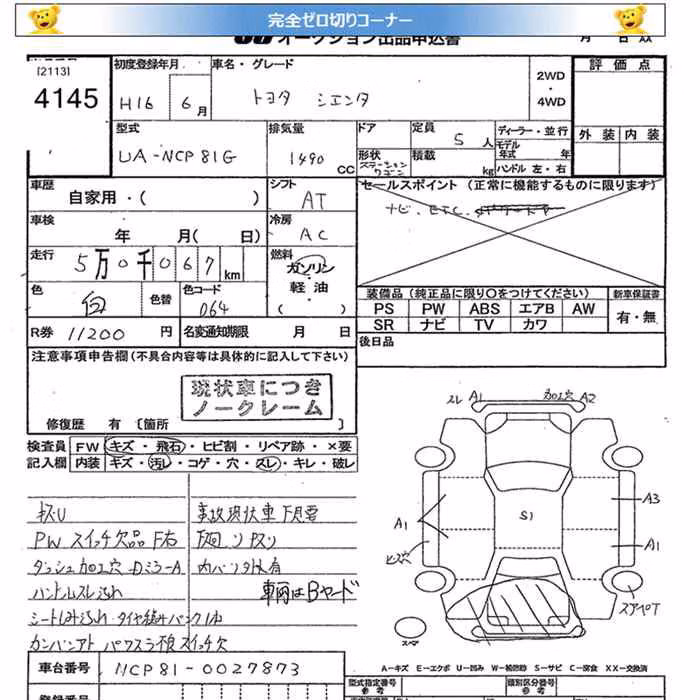 完全ゼロ切りコーナー
オークション出品申込書
[2113]
4145
初度登録年月
H16 6月
車名・グレード
トヨタ シエンタ
2WD
・
4WD
評価点
外装 内装
型式
UA-NCP81G
排気量
1490 CC
ドア
定員
5人
ディーラー・並行
モデル年式 年
形状
ステーションワゴン
積載
kg
ハンドル 左・右
車歴
自家用・( )
シフト
AT
セールスポイント (正常に機能するものに限ります)
ナビ、ETC、
車検
年 月( 日)
冷房
AC
走行
5万0千067km
燃料
ガソリン
・
軽油
( )
色
白
色替
色コード
064
装備品(純正品に限り○をつけてください)
新車保証書
PS PW ABS エアB AW
SR ナビ TV カワ
有・無
R券 11200 円
名変通知期限 月 日
後日品
注意事項申告欄(不具合内容等は具体的に記入して下さい)
現状車につき
ノークレーム
修復歴 有 〔箇所 〕
検査員 FW キズ・飛石・ヒビ割・リペア跡・×要
記入欄 内装 キズ・汚レ・コゲ・穴・スレ・キレ・破レ
キズU
事故現状車 下見要
PW スイッチ欠品 F右
下廻り サビ
ダッシュ加工穴 Dミラ-A
内バリ外有
ハンドルスレ汚れ
車両はBヤード
シートしみ汚れ タイヤ積みパンク1本
カンバンアト パワスラ不良 スイッチ欠
スレ A1 加工穴 A2
A1
ビス穴
S1
A3
A1
スペアT
A-キズ E-エクボ U-凹み W-補修跡 S-サビ C-腐食 XX-交換済
車台番号
NCP81-0027873
型式指定番号
参考
類別区分番号
参考
登録番号